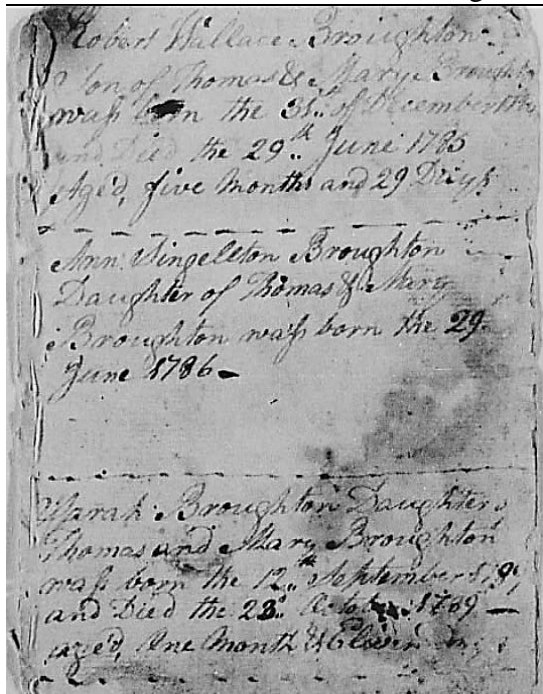 Robert Wallace Broughton
Son of Thomas & Mary Brought
waſs born the 31st of December
and Died the 29th June 1785
Aged, five Months and 29 Days
Ann Singellton Broughton
Daughter of Thomas & Mary
Broughton waſs born the 29
June 1786
Sarah Broughton Daughter
Thomas and Mary Broughton
waſs born the 12th September
and Died the 23d October 1789
aged, One Month & Eleven